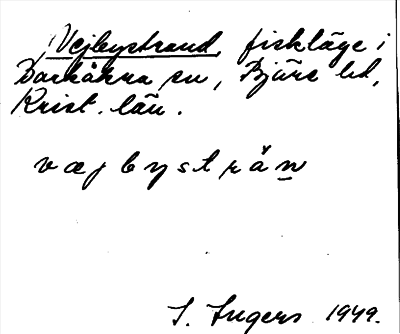 Vejbystrand, fiskläge i
Barkåkra sn, Bjäre hd,
Krist. län.
væjbysträn
I. Ingers 1949.